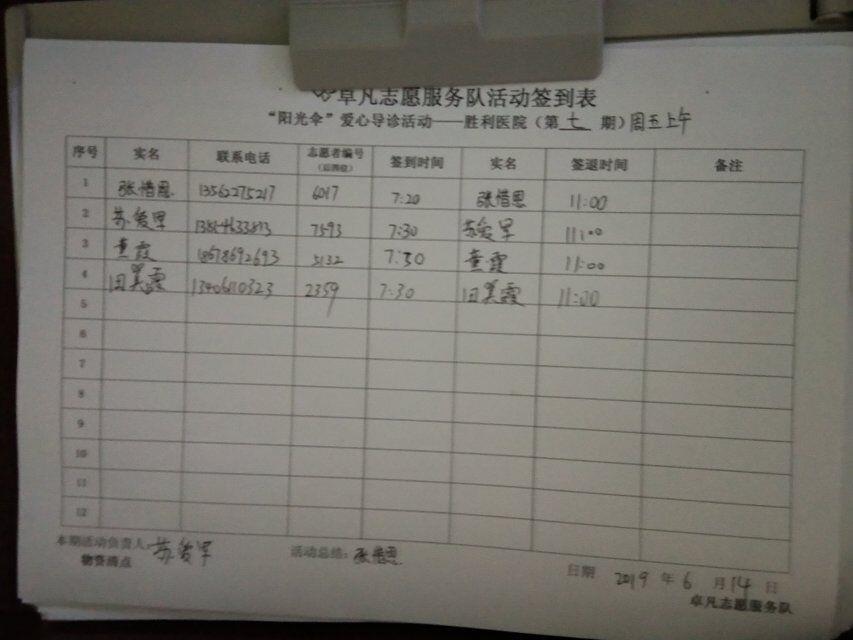 卓凡志愿服务队活动签到表
“阳光伞”爱心导诊活动——胜利医院（第 七 期）周五上午
序号 实名 联系电话 志愿者编号（后四位） 签到时间 实名 签退时间 备注
1 张惜恩 13562275217 6017 7:20 张惜恩 11:00
2 苏俊军 7593 7:30 苏俊军 11:00
3 董霞 18678692693 5132 7:30 董霞 11:00
4 田美霞 13406110323 2359 7:30 田美霞 11:00
5
6
7
8
9
10
11
12
本期活动负责人：苏俊军 活动总结：张惜恩
物资清点
日期 2019 年 6 月 14 日
卓凡志愿服务队